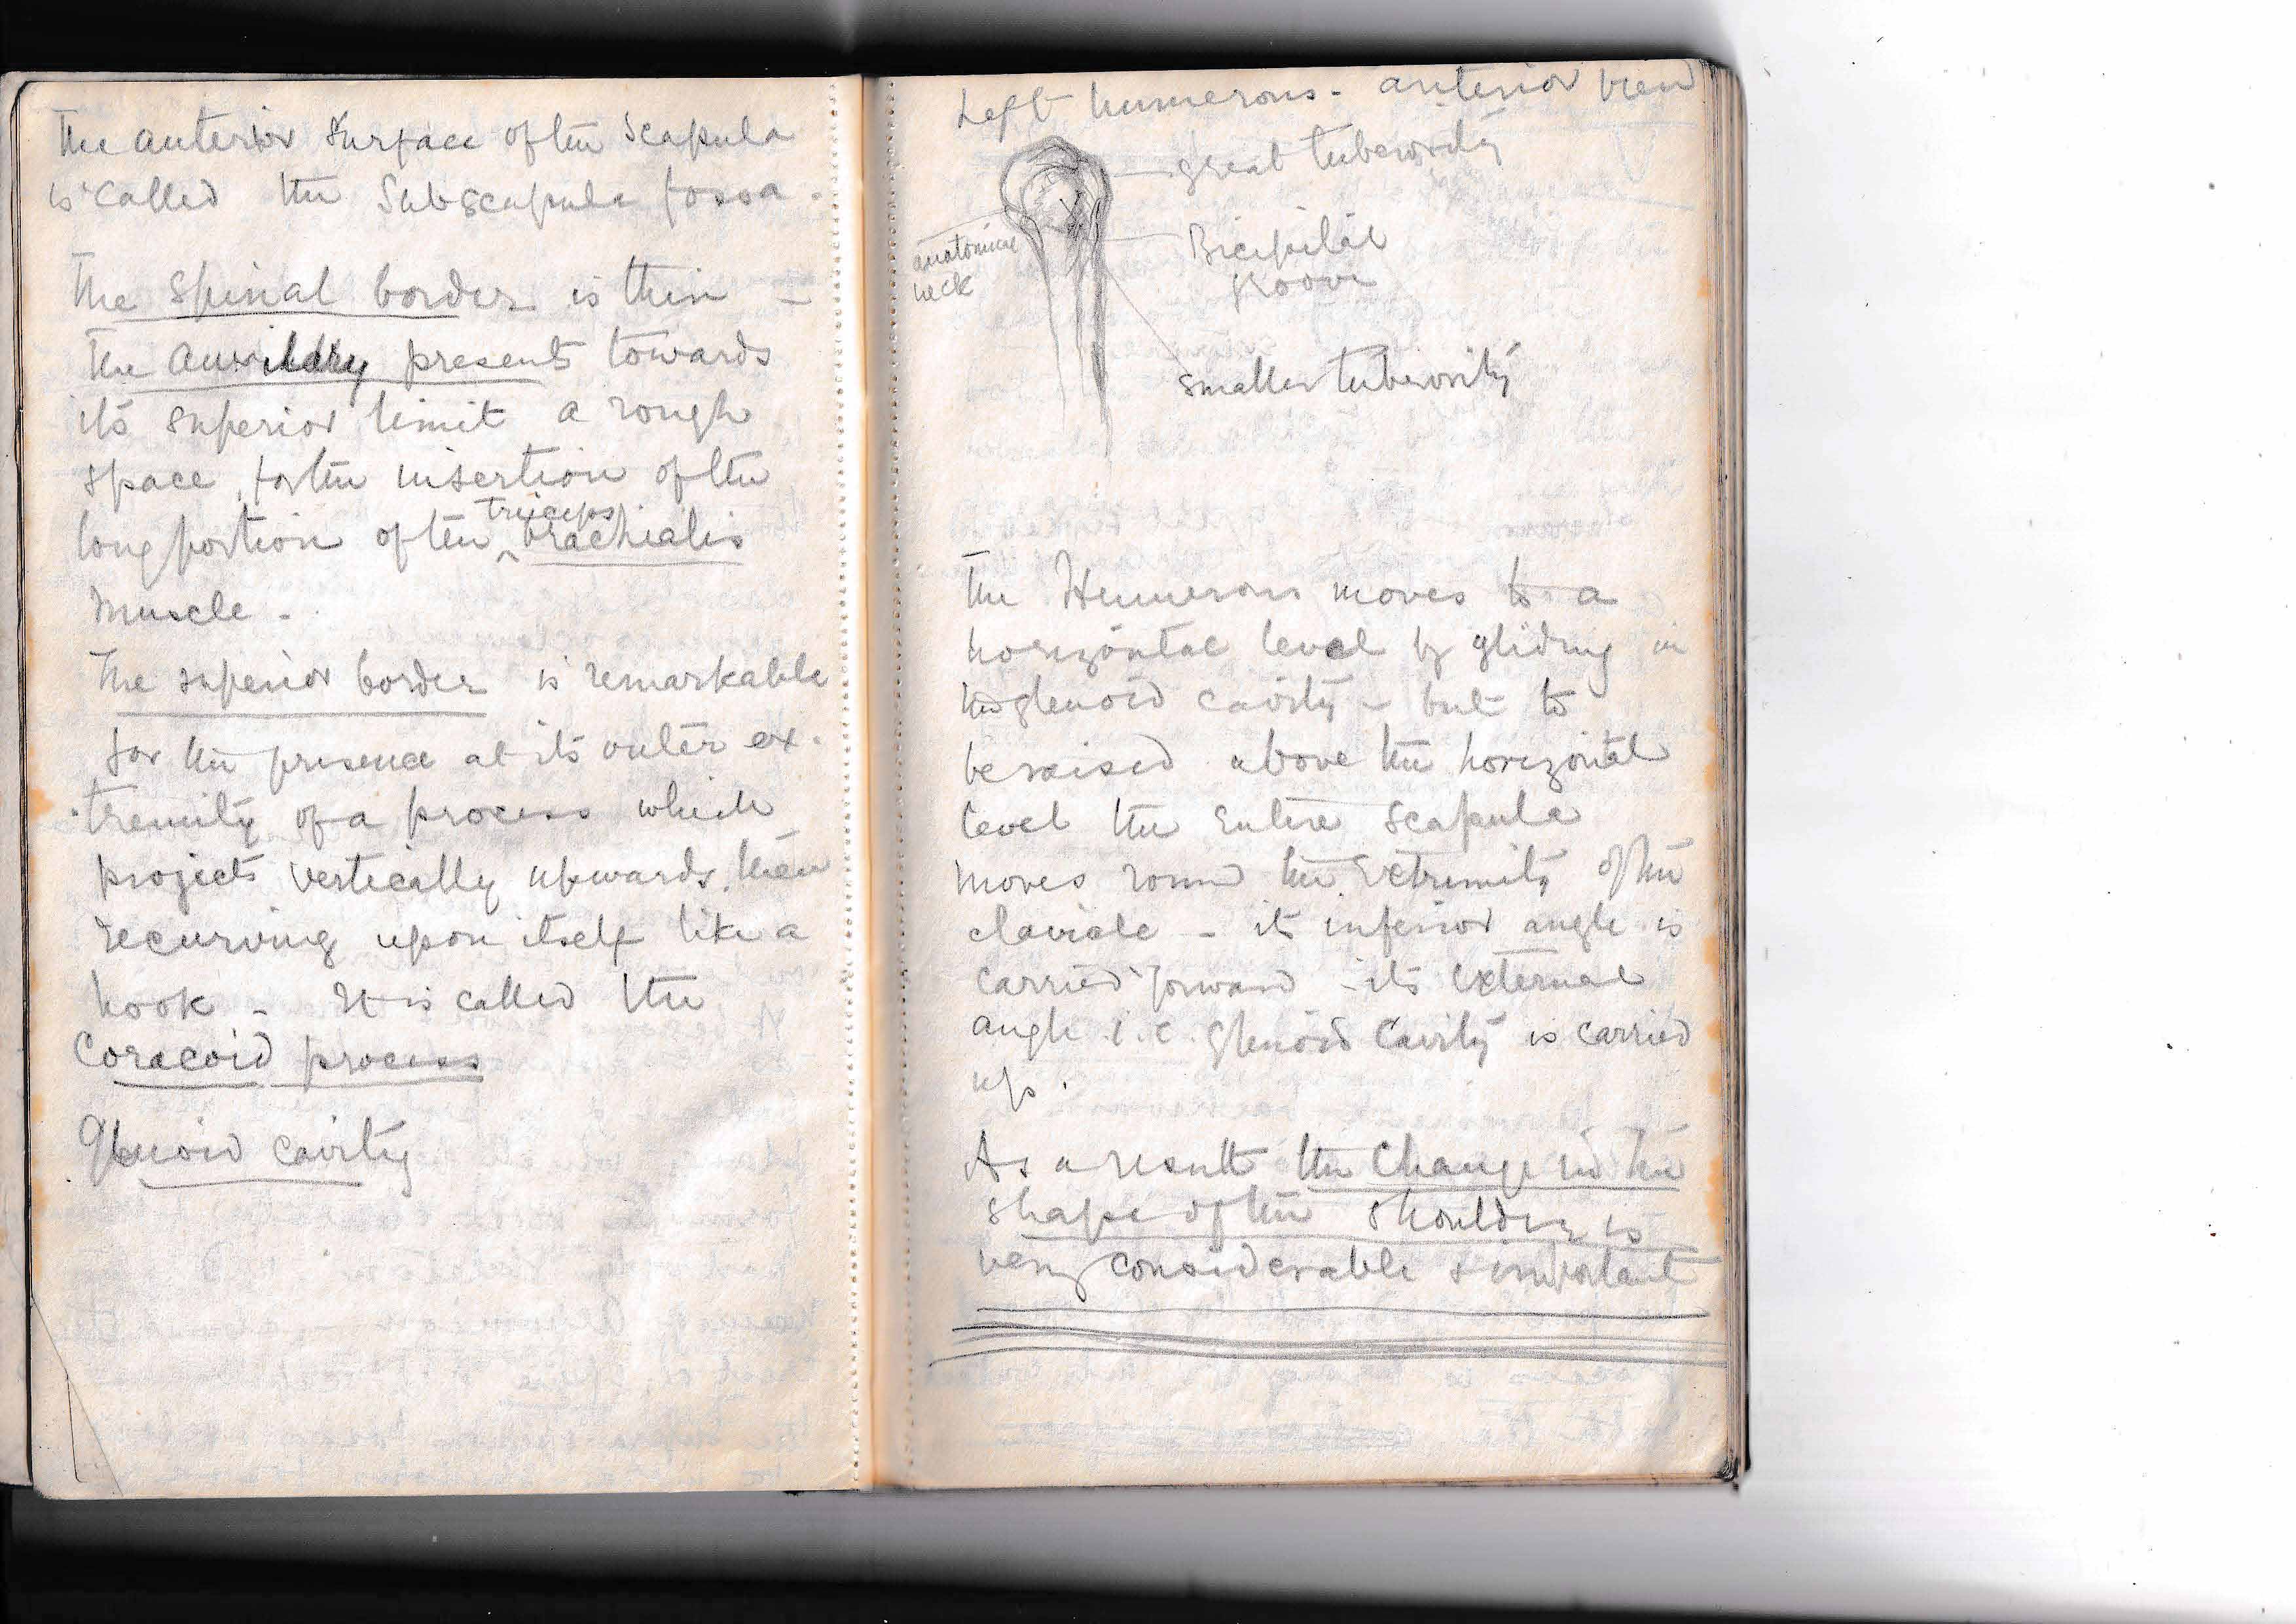 The anterior surface of the scapula
is called the Subscapula fossa.
The Spinal border is thin -
The auxillary presents towards
its superior limit a rough
space for the insertion of the
triceps
long portion of the ^ brachialis
muscle -
The superior border is remarkable
for the presence at its outer ex-
tremity of a process which
projects vertically upwards, then
recurving upon itself like a
hook - It is called the
Coracoid process
Glenoid cavity
Left humerous - anterior view
great tuberosity
anatomical
neck
Bicipital
groove
smaller tuberosity
The Humerous moves to a
horizontal level by gliding in
the glenoid cavity - but to
be raised above the horizontal
level the entire scapula
moves round the extremity of the
clavicle - its inferior angle is
carried forward - its external
angle i.e. glenoid cavity is carried
up.
As a result the change in the
shape of the shoulder is
very considerable & important